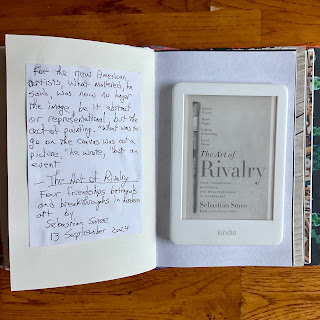 For the new American
artists, What mattered, he
said, was now no longer
the image, be it abstract
or representational, but the
act of painting. "What was to
go on the canvas was not a
picture," he wrote, "but an
event
— The Art of Rivalry
Four friendships betrayals
and breakthroughs in modern
art by
Sebastian Smee
13 September 2024
The Art of
Rivalry
Sebastian Smee
kindle